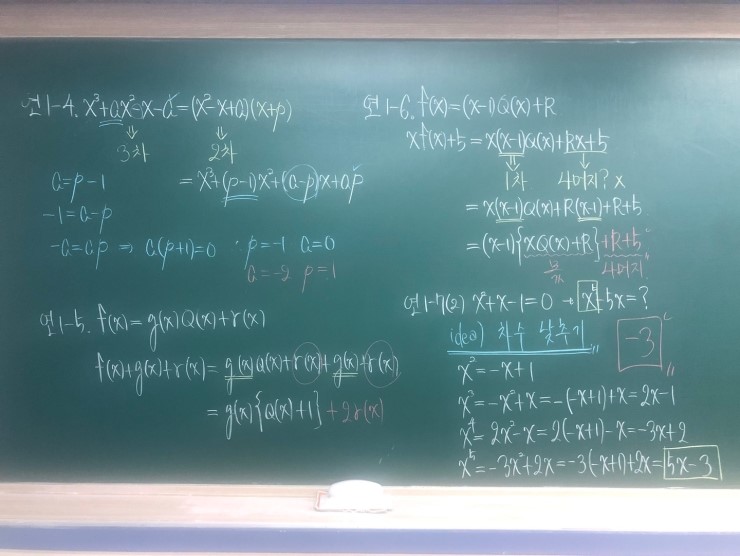 연1-4. x³+ax²-x-a=(x²-x+a)(x+p)
3차 2차
=x³+(p-1)x²+(a-p)x+ap
a=p-1
-1=a-p
-a=ap ⇒ a(p+1)=0 p=-1 a=0
a=-2 p=1
연1-5. f(x)=g(x)Q(x)+r(x)
f(x)+g(x)+r(x)=g(x)Q(x)+r(x)+g(x)+r(x)
=g(x){Q(x)+1}+2r(x)
연1-6. f(x)=(x-1)Q(x)+R
xf(x)+5=x(x-1)Q(x)+Rx+5
1차 나머지? x
=x(x-1)Q(x)+R(x-1)+R+5
=(x-1){xQ(x)+R}+R+5
몫 나머지
연1-7(2) x²+x-1=0 → x⁵-5x=?
idea) 차수 낮추기 -3
x²=-x+1
x³=-x²+x=-(-x+1)+x=2x-1
x⁴=2x²-x=2(-x+1)-x=-3x+2
x⁵=-3x²+2x=-3(-x+1)+2x=5x-3